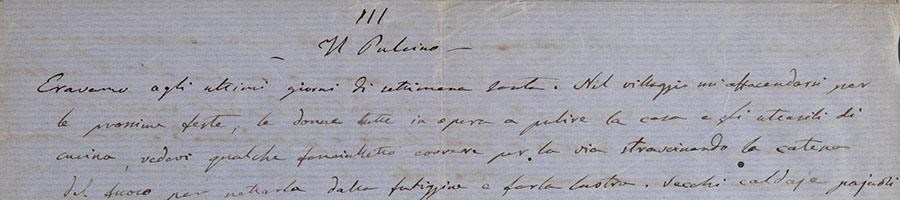 III
— Il Pulcino —
Eravamo agli ultimi giorni di settimana santa. Nel villaggio un affacendarsi per
le prossime feste, le donne tutte in opera a pulire la casa e gli utensili di
cucina, vedevi qualche fanciulletto correre per la via strascinando la catena
del fuoco per nettarla dalla fuliggine e farla lustra. Secchi caldaje pajuoli